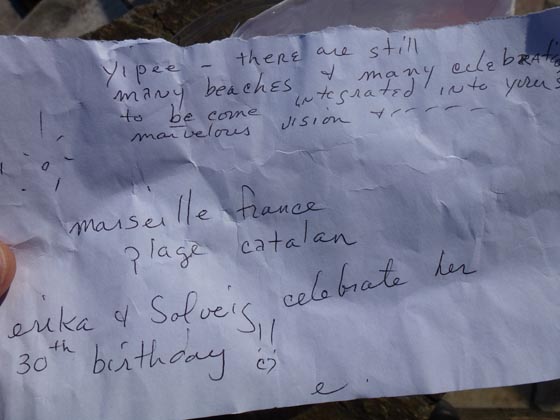 Yipee - there are still
many beaches & many celebrati
to be come integrated into your
marvelous vision + ------
marseille france
plage catalan
erika & Solveig celebrate her
30th birthday !! :)
e.